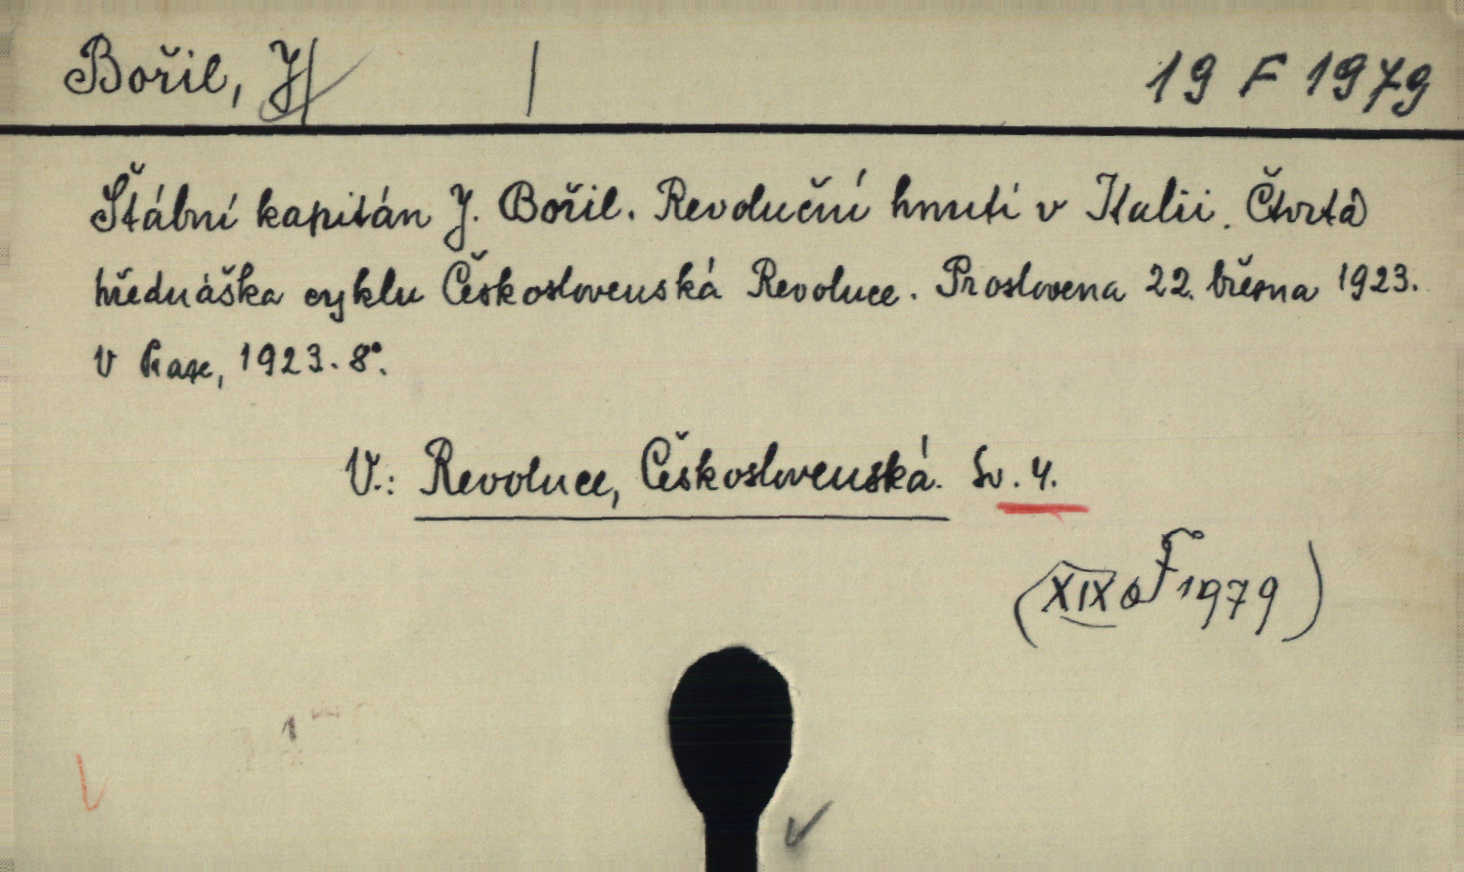 Bořil, J. 19 F 1979
Štábní kapitán J. Bořil. Revoluční hnutí v Italii. Čtvrtá
přednáška cyklu Československá Revoluce. Proslovena 22. března 1923.
V Praze, 1923. 8°.
V.: Revoluce, Československá. Sv. 4.
(XIX F 1979)